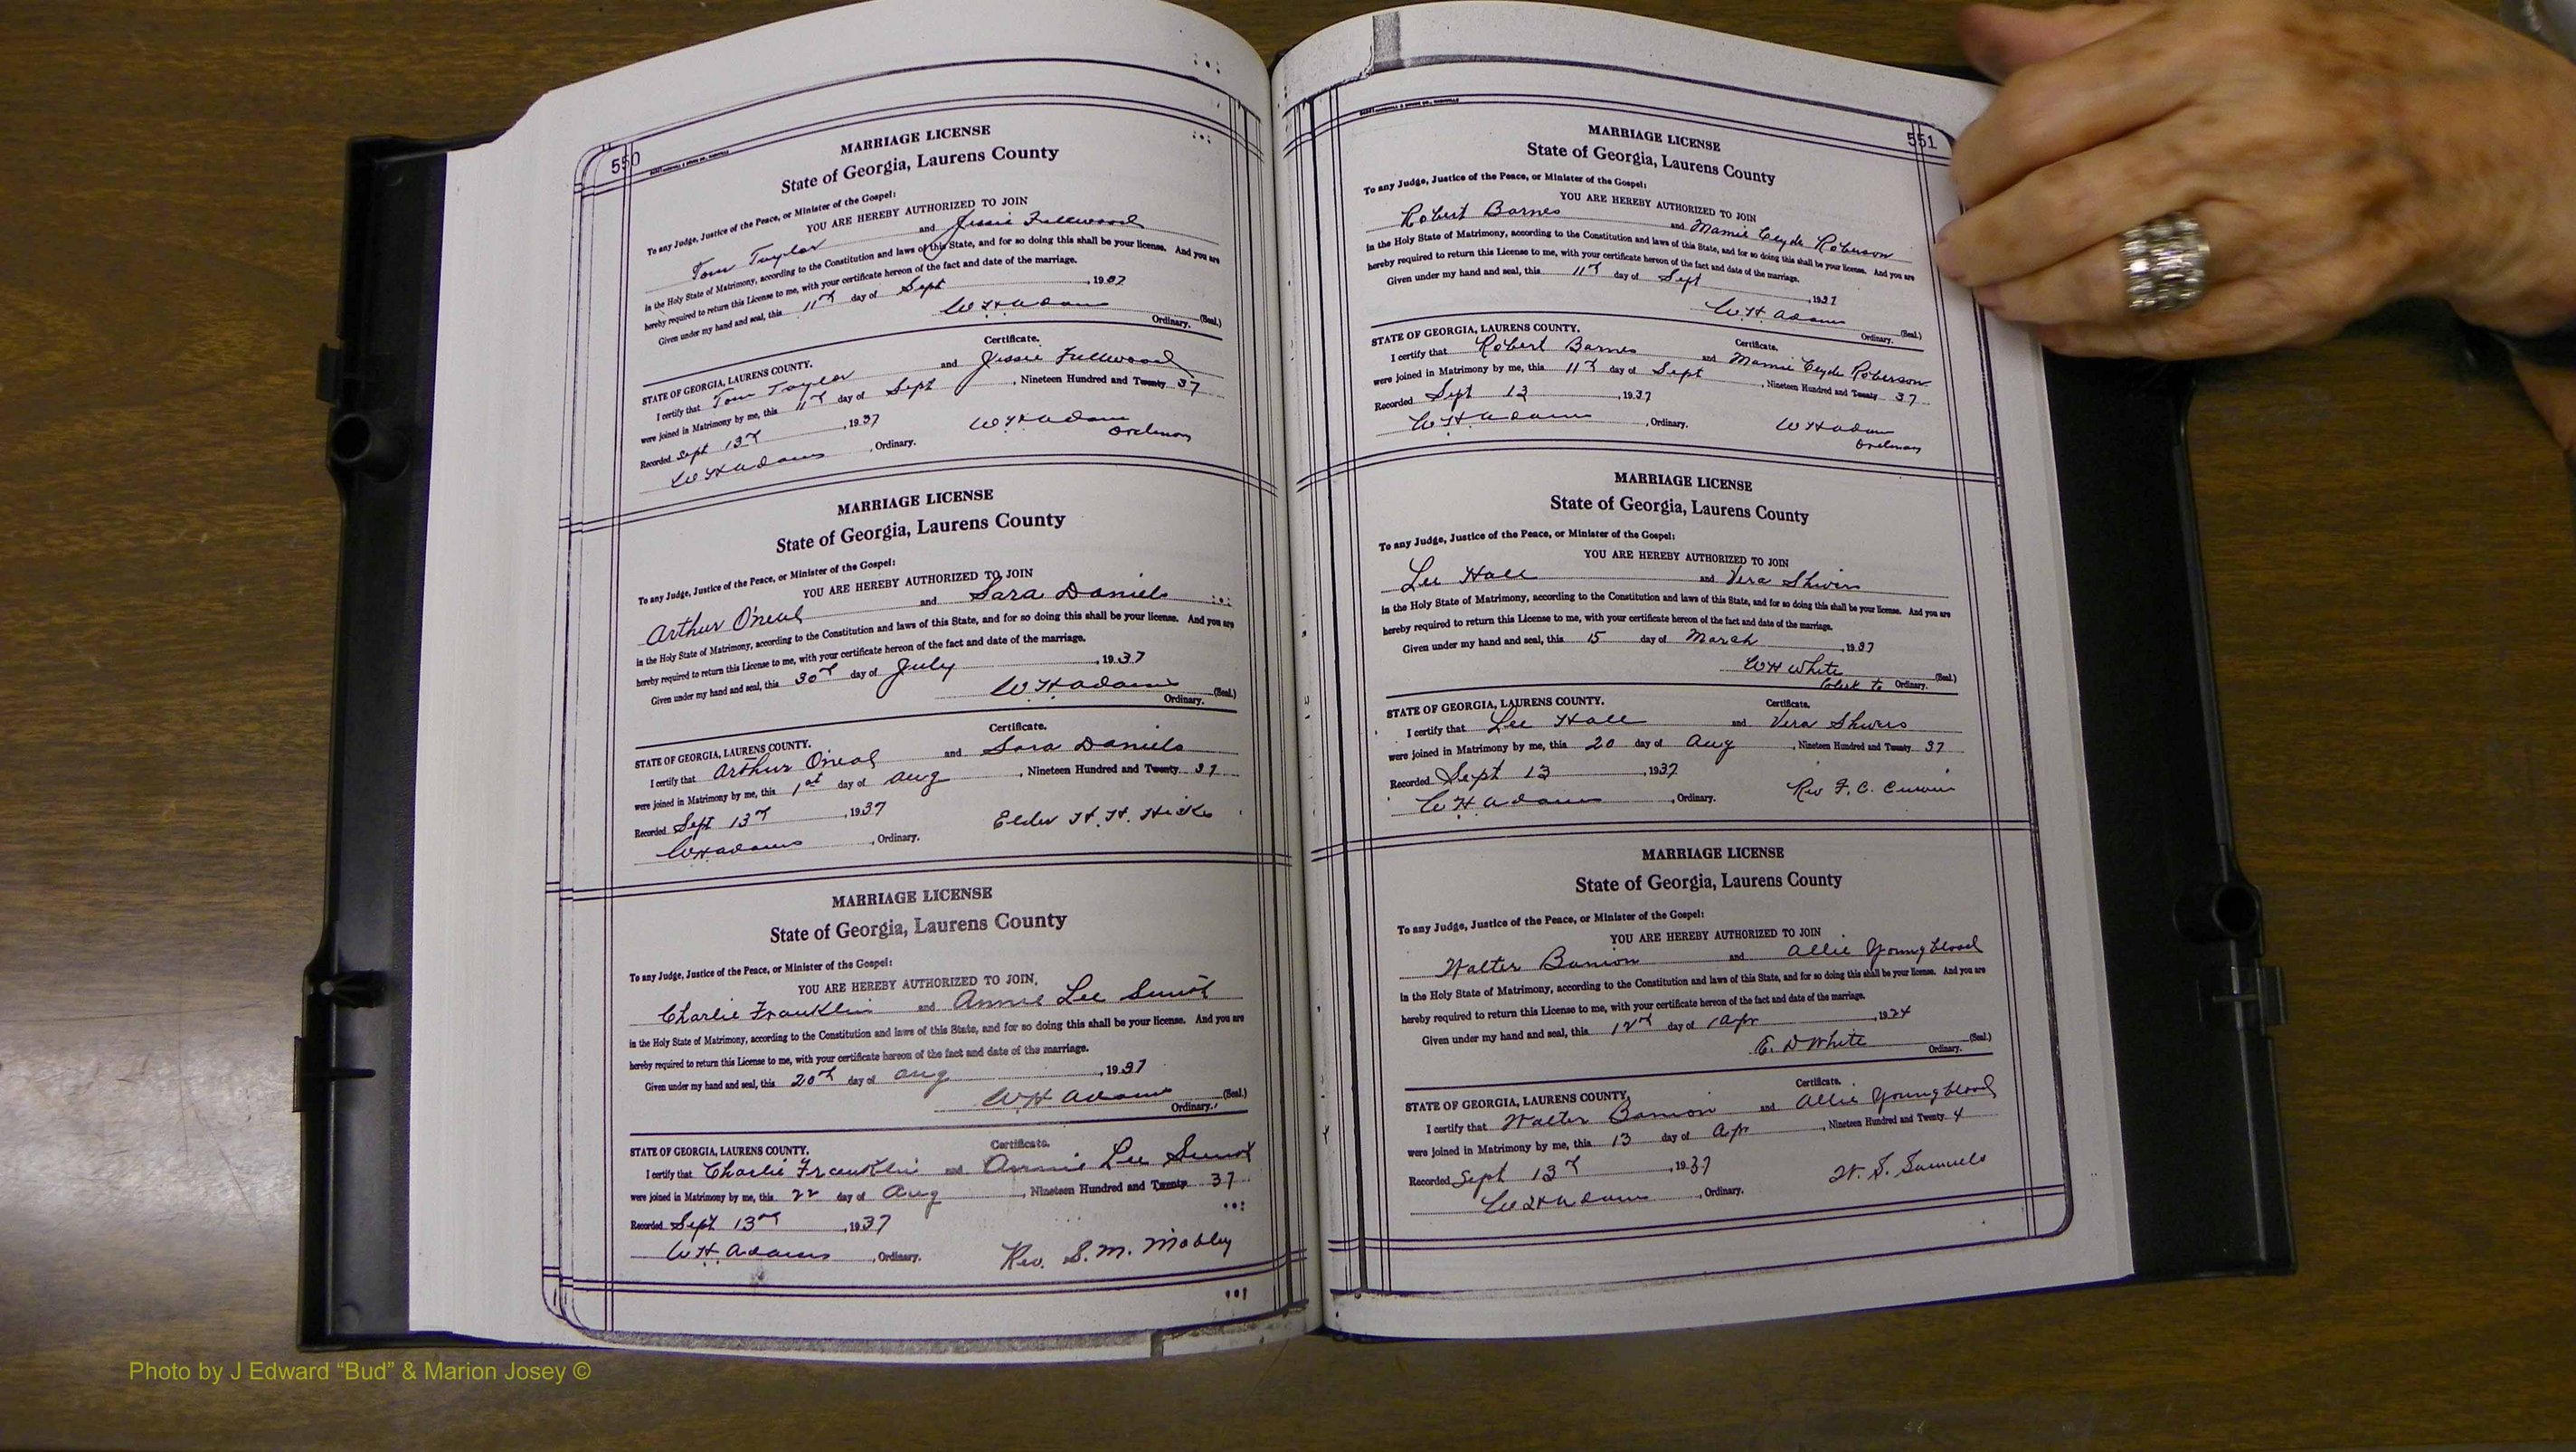 550
MARRIAGE LICENSE
State of Georgia, Laurens County
To any Judge, Justice of the Peace, or Minister of the Gospel:
YOU ARE HEREBY AUTHORIZED TO JOIN
Tom Taylor and Jessie Fullwood
in the Holy State of Matrimony, according to the Constitution and laws of this State, and for so doing this shall be your license. And you are
hereby required to return this License to me, with your certificate hereon of the fact and date of the marriage.
Given under my hand and seal, this 11th day of Sept, 1937
W H Adams (Seal.)
Ordinary.
Certificate.
STATE OF GEORGIA, LAURENS COUNTY.
I certify that Tom Taylor and Jessie Fullwood
were joined in Matrimony by me, this 11th day of Sept, Nineteen Hundred and Twenty 37
Recorded Sept 13th, 1937
W H Adams, Ordinary. W H Adams
Ordinary
MARRIAGE LICENSE
State of Georgia, Laurens County
To any Judge, Justice of the Peace, or Minister of the Gospel:
YOU ARE HEREBY AUTHORIZED TO JOIN
Arthur O'neal and Sara Daniels
in the Holy State of Matrimony, according to the Constitution and laws of this State, and for so doing this shall be your license. And you are
hereby required to return this License to me, with your certificate hereon of the fact and date of the marriage.
Given under my hand and seal, this 30th day of July, 1937
W H Adams (Seal.)
Ordinary.
Certificate.
STATE OF GEORGIA, LAURENS COUNTY.
I certify that Arthur Oneal and Sara Daniels
were joined in Matrimony by me, this 1st day of Aug, Nineteen Hundred and Twenty 37
Recorded Sept 13th, 1937
W H Adams, Ordinary. Elder H. H. Hicks
MARRIAGE LICENSE
State of Georgia, Laurens County
To any Judge, Justice of the Peace, or Minister of the Gospel:
YOU ARE HEREBY AUTHORIZED TO JOIN
Charlie Franklin and Annie Lee Smith
in the Holy State of Matrimony, according to the Constitution and laws of this State, and for so doing this shall be your license. And you are
hereby required to return this License to me, with your certificate hereon of the fact and date of the marriage.
Given under my hand and seal, this 20th day of Aug, 1937
W H Adams (Seal.)
Ordinary.
Certificate.
STATE OF GEORGIA, LAURENS COUNTY.
I certify that Charlie Franklin and Annie Lee Smith
were joined in Matrimony by me, this 22 day of Aug, Nineteen Hundred and Twenty 37
Recorded Sept 13th, 1937
W H Adams, Ordinary. Rev. S. M. Mobley
551
MARRIAGE LICENSE
State of Georgia, Laurens County
To any Judge, Justice of the Peace, or Minister of the Gospel:
YOU ARE HEREBY AUTHORIZED TO JOIN
Robert Barnes and Mamie Clyde Roberson
in the Holy State of Matrimony, according to the Constitution and laws of this State, and for so doing this shall be your license. And you are
hereby required to return this License to me, with your certificate hereon of the fact and date of the marriage.
Given under my hand and seal, this 11th day of Sept, 1937
W. H. Adams (Seal.)
Ordinary.
STATE OF GEORGIA, LAURENS COUNTY. Certificate.
I certify that Robert Barnes and Mamie Clyde Roberson
were joined in Matrimony by me, this 11th day of Sept, Nineteen Hundred and Twenty 37
Recorded Sept 13, 1937
W H Adams, Ordinary. W H Adams
Ordinary
MARRIAGE LICENSE
State of Georgia, Laurens County
To any Judge, Justice of the Peace, or Minister of the Gospel:
YOU ARE HEREBY AUTHORIZED TO JOIN
Lee Hall and Vera
in the Holy State of Matrimony, according to the Constitution and laws of this State, and for so doing this shall be your license. And you are
hereby required to return this License to me, with your certificate hereon of the fact and date of the marriage.
Given under my hand and seal, this 15 day of March, 1937
W H White (Seal.)
Clerk to Ordinary.
STATE OF GEORGIA, LAURENS COUNTY. Certificate.
I certify that Lee Hall and Vera
were joined in Matrimony by me, this 20 day of Aug, Nineteen Hundred and Twenty 37
Recorded Sept 13, 1937
W H Adams, Ordinary. Rev F. C.
MARRIAGE LICENSE
State of Georgia, Laurens County
To any Judge, Justice of the Peace, or Minister of the Gospel:
YOU ARE HEREBY AUTHORIZED TO JOIN
Walter and Allie Youngblood
in the Holy State of Matrimony, according to the Constitution and laws of this State, and for so doing this shall be your license. And you are
hereby required to return this License to me, with your certificate hereon of the fact and date of the marriage.
Given under my hand and seal, this 12th day of Apr, 1924
E. D White (Seal.)
Ordinary.
Certificate.
STATE OF GEORGIA, LAURENS COUNTY.
I certify that Walter and Allie Youngblood
were joined in Matrimony by me, this 13 day of Apr, Nineteen Hundred and Twenty 4
Recorded Sept 13th, 1937
W H Adams, Ordinary. Samuels
Photo by J Edward “Bud” & Marion Josey ©